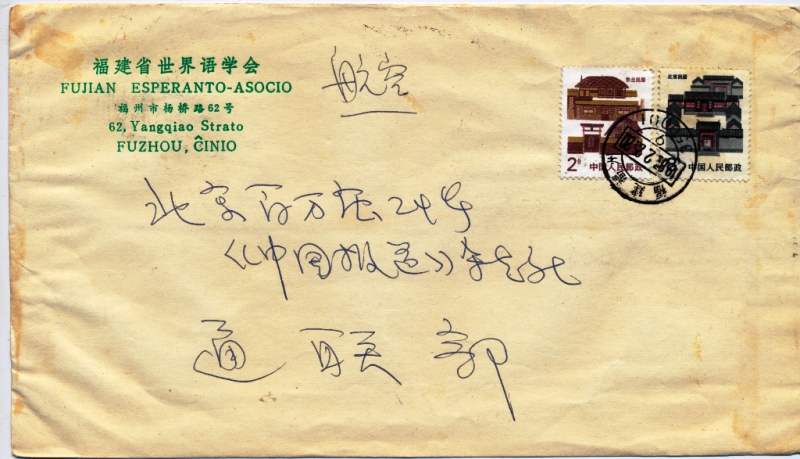 福建省世界语学会
FUJIAN ESPERANTO-ASOCIO
福州市杨桥路62号
62, Yangqiao Strato
FUZHOU, ĈINIO
航空
东北民居
2分
中国人民邮政
北京民居
中国人民邮政
福建
北京百万庄24号
《中国报道》杂志社
通联部